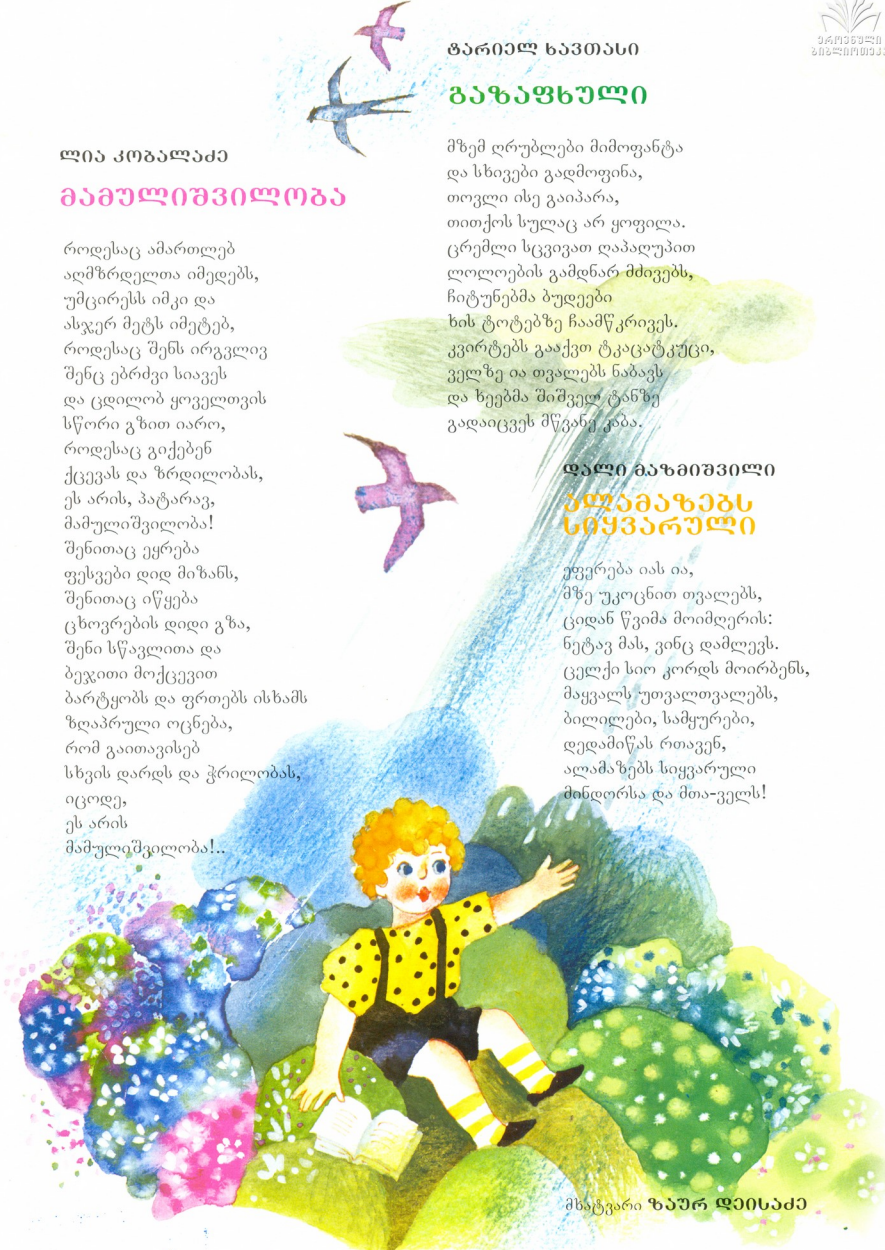 ეროვნული
ბიბლიოთეკა
ლია კობალაძე
მამულიშვილობა
როდესაც ამართლებ
აღმზრდელთა იმედებს,
უმცირესს იმკი და
ასჯერ მეტს იმეტებ,
როდესაც შენს ირგვლივ
შენც ებრძვი სიავეს
და ცდილობ ყოველთვის
სწორი გზით იარო,
როდესაც გიქებენ
ქცევას და ზრდილობას,
ეს არის, პატარავ,
მამულიშვილობა!
შენითაც ეყრება
ფესვები დიდ მიზანს,
შენითაც იწყება
ცხოვრების დიდი გზა,
შენი სწავლითა და
ბეჯითი მოქცევით
ბარტყობს და ფრთებს ისხამს
ზღაპრული ოცნება,
რომ გაითავისებ
სხვის დარდს და ჭრილობას,
იცოდე,
ეს არის
მამულიშვილობა!..
ტარიელ ხავთასი
გაზაფხული
მზემ ღრუბლები მიმოფანტა
და სხივები გადმოფინა,
თოვლი ისე გაიპარა,
თითქოს სულაც არ ყოფილა.
ცრემლი სცვივათ ღაპაღუპით
ლოლოების გამდნარ მძივებს,
ჩიტუნებმა ბუდეები
ხის ტოტებზე ჩაამწკრივეს.
კვირტებს გააქვთ ტკაცატკუცი,
ველზე ია თვალებს ნაბავს
და ხეებმა შიშველ ტანზე
გადაიცვეს მწვანე კაბა.
დალი მაზმიშვილი
ალამაზებს
სიყვარული
ეფერება იას ია,
მზე უკოცნით თვალებს,
ციდან წვიმა მოიმღერის:
ნეტავ მას, ვინც დამლევს.
ცელქი სიო კორდს მოირბენს,
მაყვალს უთვალთვალებს,
ბილილები, სამყურები,
დედამიწას რთავენ,
ალამაზებს სიყვარული
მინდორსა და მთა-ველს!
მხატვარი ზაურ დეისაძე